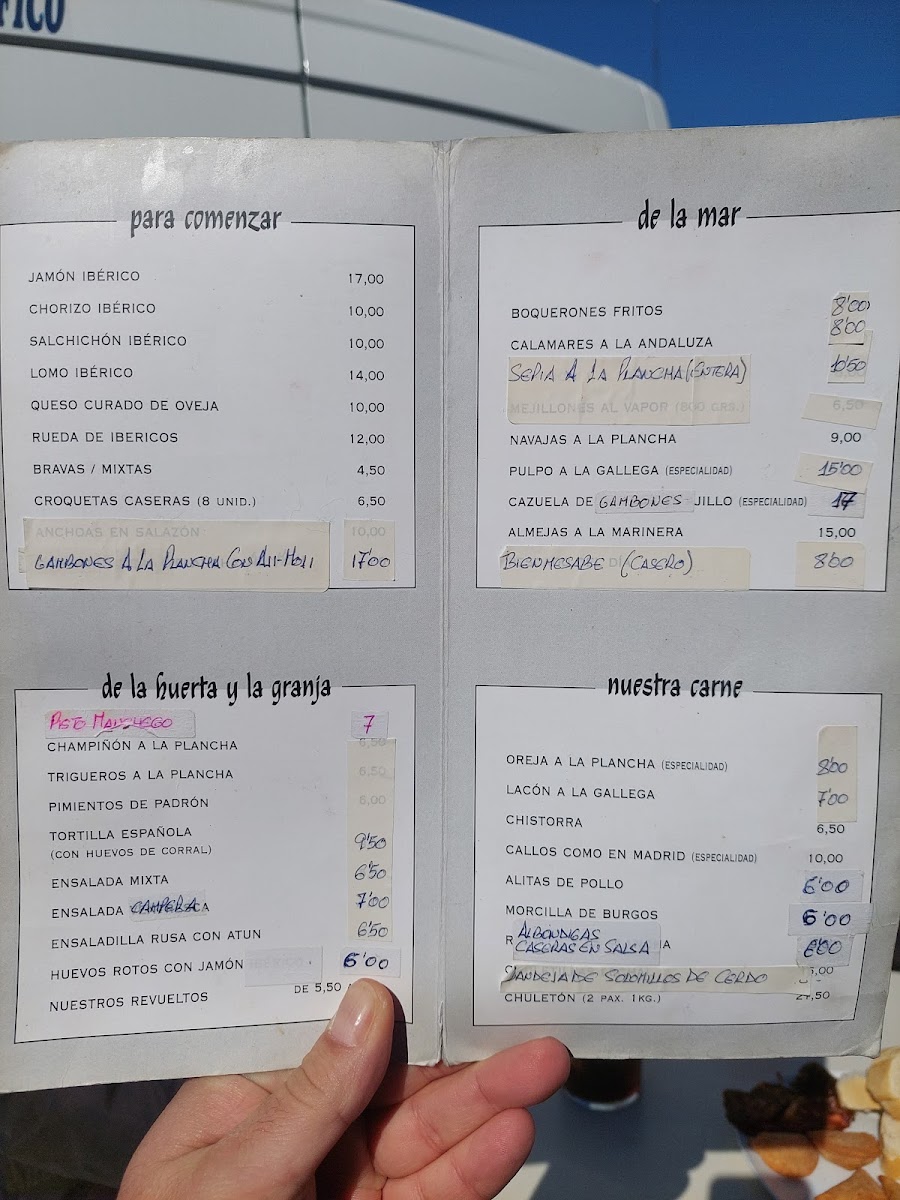 FICO
para comenzar
JAMÓN IBÉRICO 17,00
CHORIZO IBÉRICO 10,00
SALCHICHÓN IBÉRICO 10,00
LOMO IBÉRICO 14,00
QUESO CURADO DE OVEJA 10,00
RUEDA DE IBERICOS 12,00
BRAVAS / MIXTAS 4,50
CROQUETAS CASERAS (8 UNID.) 6,50
ANCHOAS EN SALAZÓN 10,00
GAMBONES A LA PLANCHA CON ALI-HOLI 17'00
de la mar
BOQUERONES FRITOS 8'00
CALAMARES A LA ANDALUZA 8'00
SEPIA A LA PLANCHA (ENTERA) 10'50
MEJILLONES AL VAPOR (800 GRS.) 6,50
NAVAJAS A LA PLANCHA 9,00
PULPO A LA GALLEGA (ESPECIALIDAD) 15'00
CAZUELA DE GAMBONES JILLO (ESPECIALIDAD) 17
ALMEJAS A LA MARINERA 15,00
BIENMESABE (CASERO) 8'00
de la huerta y la granja
PISTO MANCHEGO 7
CHAMPIÑÓN A LA PLANCHA 6,50
TRIGUEROS A LA PLANCHA 6,50
PIMIENTOS DE PADRÓN 6,00
TORTILLA ESPAÑOLA
(CON HUEVOS DE CORRAL) 9'50
ENSALADA MIXTA 6'50
ENSALADA CAMPERA 7'00
ENSALADILLA RUSA CON ATUN 6'50
HUEVOS ROTOS CON JAMÓN 6'00
NUESTROS REVUELTOS DE 5,50
nuestra carne
OREJA A LA PLANCHA (ESPECIALIDAD) 8'00
LACÓN A LA GALLEGA 7'00
CHISTORRA 6,50
CALLOS COMO EN MADRID (ESPECIALIDAD) 10,00
ALITAS DE POLLO 6'00
MORCILLA DE BURGOS 6'00
ALBONDIGAS
CASERAS EN SALSA 6'00
DE SOLOMILLOS DE CERDO
CHULETÓN (2 PAX. 1KG.)